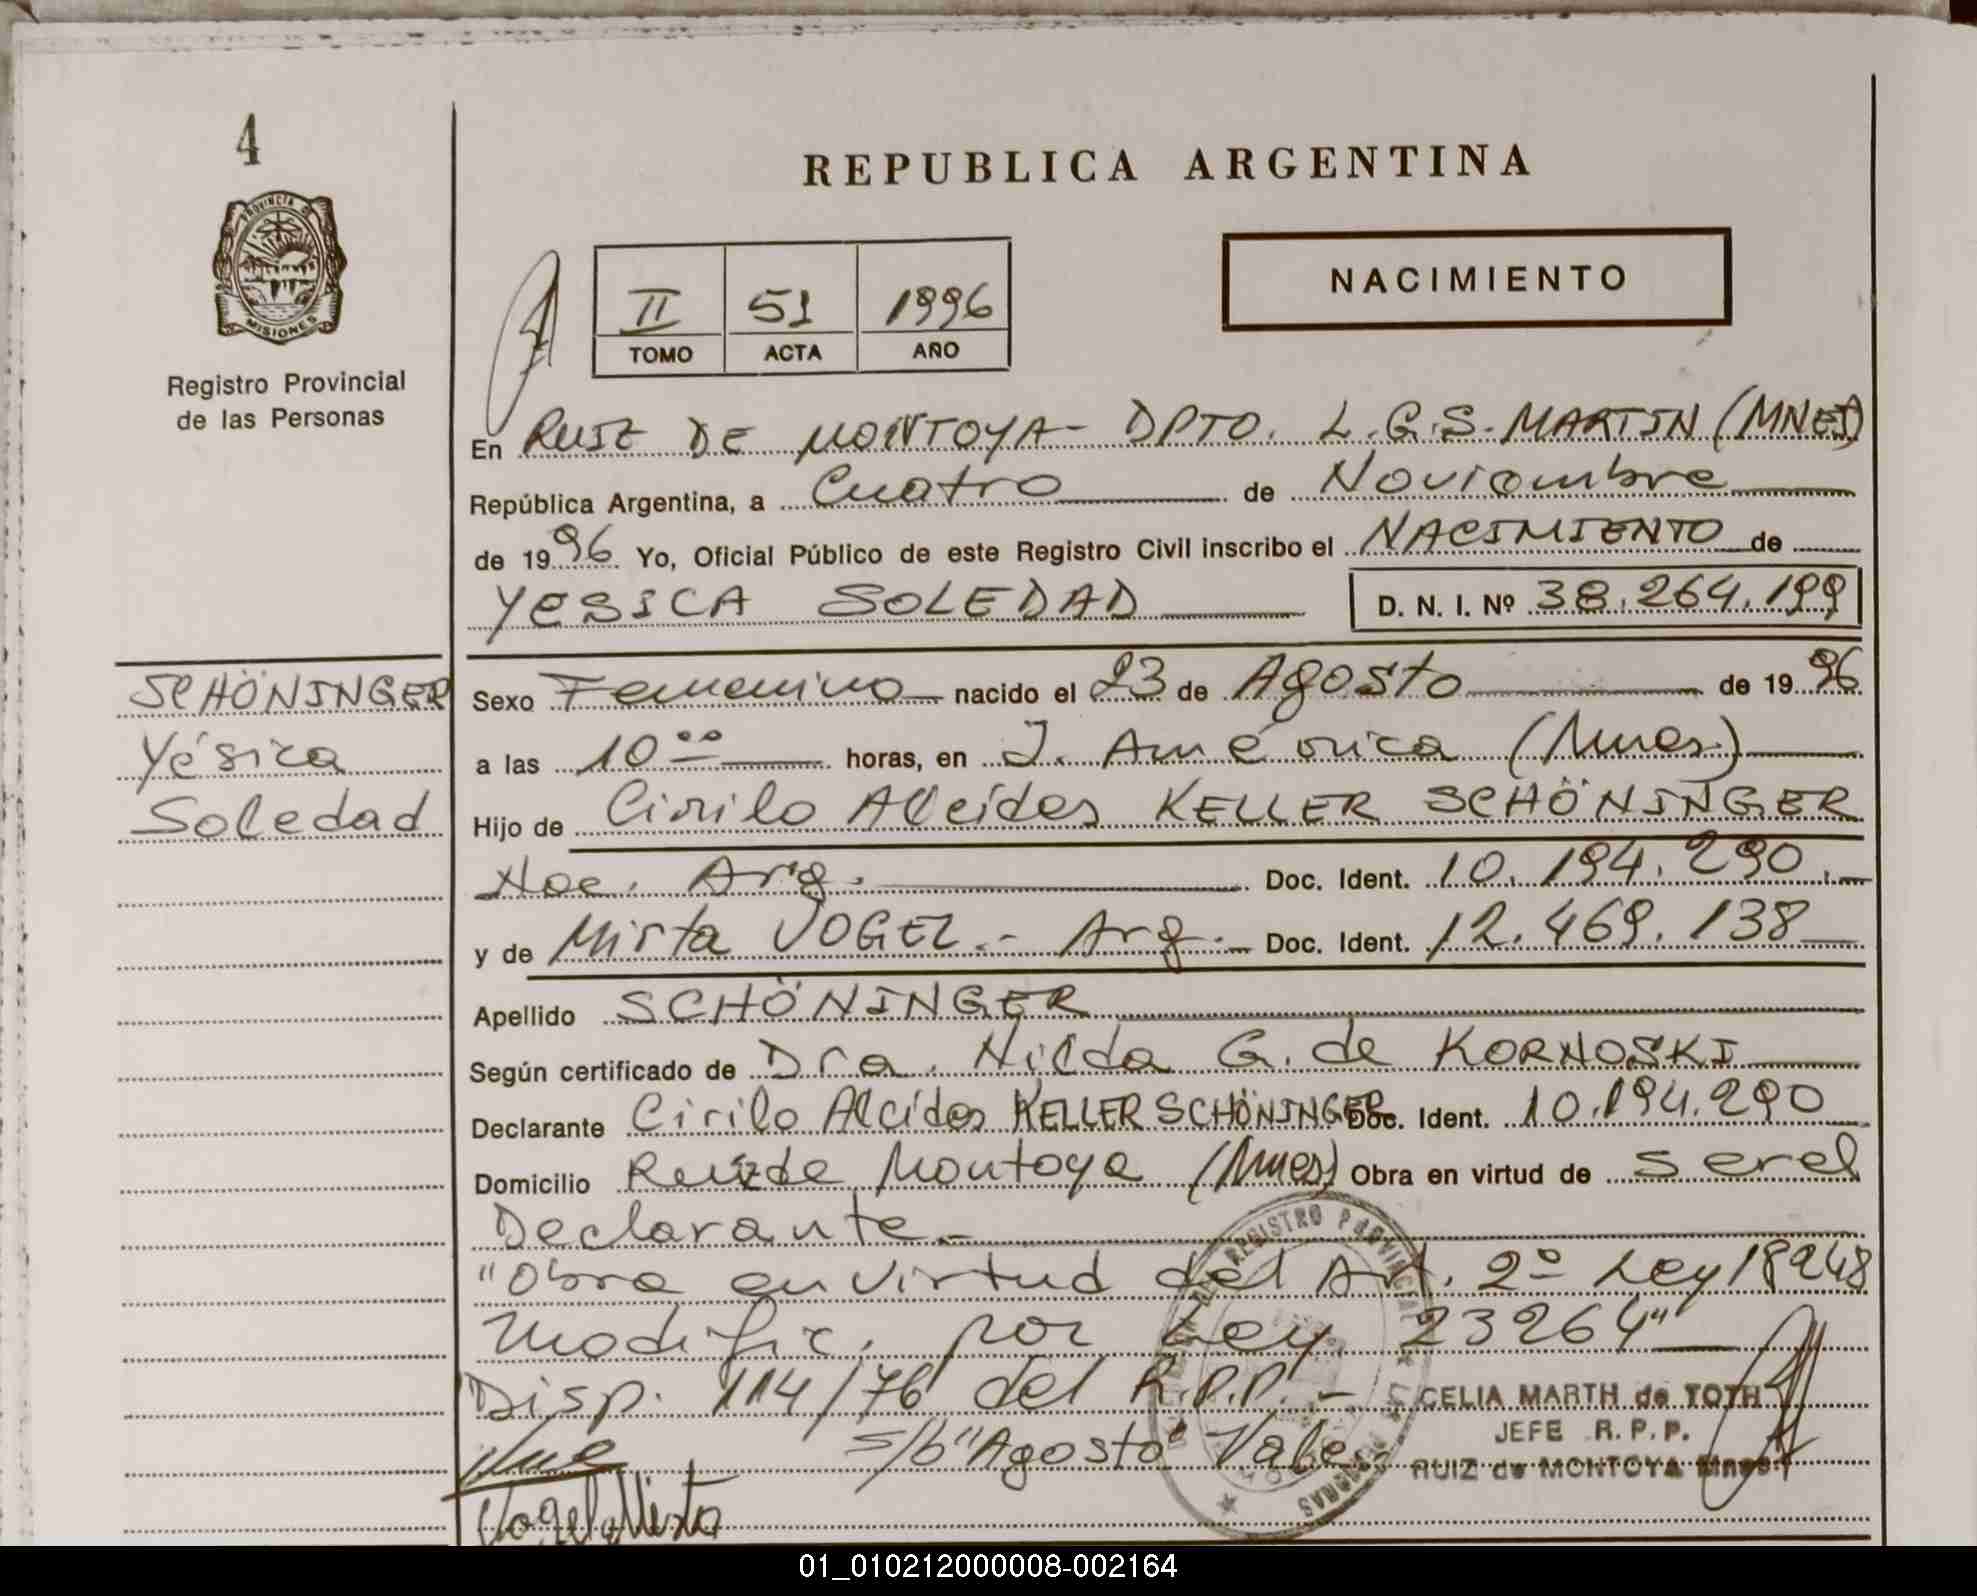 4
REPUBLICA ARGENTINA
PROVINCIA DE
MISIONES
II 51 1996
TOMO ACTA AÑO
NACIMIENTO
Registro Provincial
de las Personas
En RUIZ DE MONTOYA - DPTO. L.G.S. MARTIN (MNES)
República Argentina, a Cuatro de Noviembre
de 1996 Yo, Oficial Público de este Registro Civil inscribo el NACIMIENTO de
YESICA SOLEDAD D. N. I. Nº 38.264.199
SCHÖNINGER
Yésica
Soledad
Sexo Femenino nacido el 23 de Agosto de 1996
a las 10°° horas, en J. América (Mnes)
Hijo de Cirilo Alcides KELLER SCHÖNINGER
Noc. Arg. Doc. Ident. 10.194.290.-
y de Mirta VOGEL.- Arg.- Doc. Ident. 12.469.138
Apellido SCHÖNINGER
Según certificado de Dra. Nilda G. de KORNOSKI
Declarante Cirilo Alcides KELLER SCHÖNINGER Doc. Ident. 10.194.290
Domicilio Ruiz de Montoya (Mnes) Obra en virtud de ser el
Declarante.-
"Obra en virtud del Art. 2º Ley 18248
modific. por Ley 23264"
Disp. 114/76 del R.P.P.-
s/b "Agosto" Vale.
REGISTRO PROVINCIAL
CELIA MARTH de TOTH
JEFE R. P. P.
RUIZ de MONTOYA Mnes.
Vogel Mirta
01_010212000008-002164